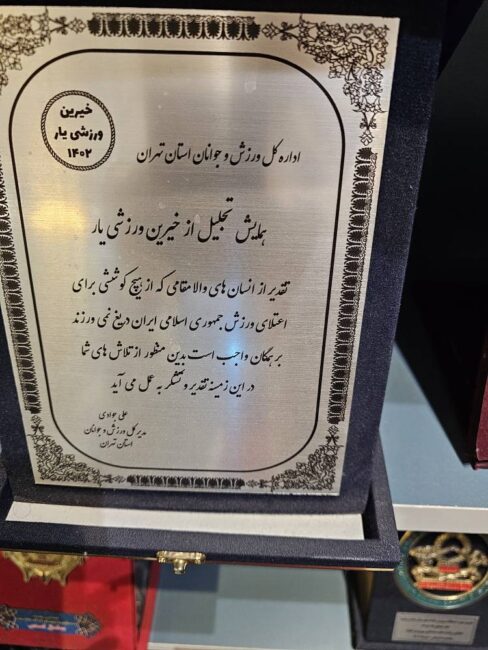 خیرین
ورزشی یار
۱۴۰۲
اداره کل ورزش و جوانان استان تهران
همایش تجلیل از خیرین ورزشی یار
تقدیر از انسان های والا مقامی که از هیچ کوششی برای
اعتلای ورزش جمهوری اسلامی ایران دریغ نمی ورزند
بر همگان واجب است بدین منظور از تلاش های شما
در این زمینه تقدیر و تشکر به عمل می آید
علی جوادی
مدیر کل ورزش و جوانان
استان تهران